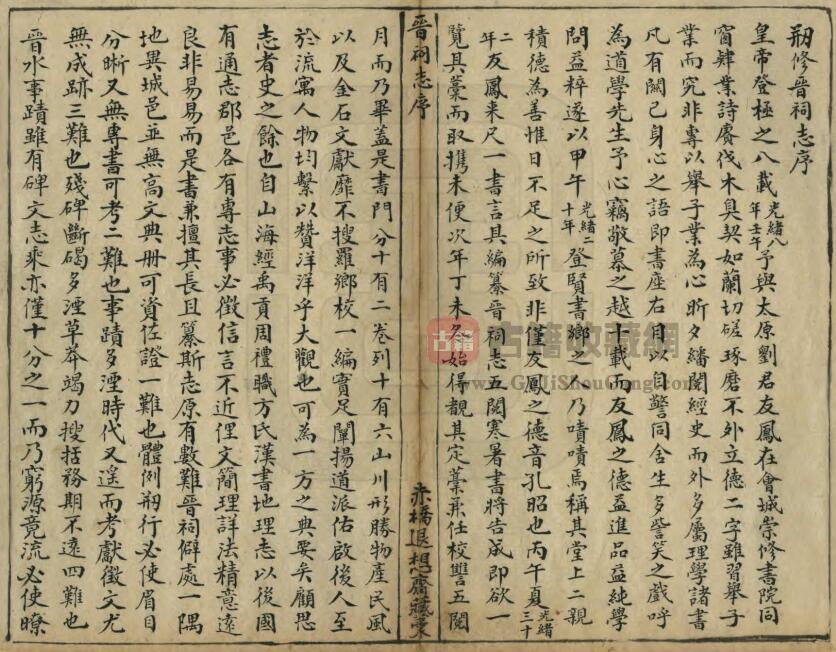 刱修晉祠志序
皇帝登極之八載光緒八年壬午予與太原劉君友鳳在會城崇修書院同
窗肄業詩賡伐木臭契如蘭切磋琢磨不外立德二字雖習舉子
業而究非專以舉子業為心昕夕繙閱經史而外多屬理學諸書
凡有關己身心之語即書座右用以自警同舍生多訾笑之戲呼
為道學先生予心竊敬慕之越十載而友鳳之德益進品益純學
問益粹遂以甲午光緒二十年登賢書鄉之人乃嘖嘖焉稱其堂上二親
積德為善惟日不足之所致非僅友鳳之德音孔昭也丙午夏光緒三十
二年友鳳来尺一書言其編纂晉祠志五閱寒暑書將告成即欲一
覽其藁而取携未便次年丁未冬始得覩其定藁兼任校讐五閱
晉祠志序
赤橋退想齋藏藁
月而乃畢蓋是書門分十有二卷列十有六山川形勝物產民風
以及金石文獻靡不搜羅鄉校一編實足闡揚道派佑啟後人至
於流寓人物均繫以贊洋洋乎大觀也可為一方之典要矣顧思
志者史之餘也自山海經禹貢周禮職方氏漢書地理志以後國
有通志郡邑各有專志事必徵信言不近俚文簡理詳法精意遠
良非易易而是書兼擅其長且纂斯志原有數難晉祠僻處一隅
地異城邑並無高文典册可資佐證一難也體例刱行必使眉目
分晰又無專書可考二難也事蹟多湮時代又遥而考獻徵文尤
無成跡三難也殘碑斷碣多湮草莽竭力搜括務期不遠四難也
晉水事蹟雖有碑文志乘亦僅十分之一而乃窮源竟流必使瞭
古籍收藏網
www.GuJiShouCang.com